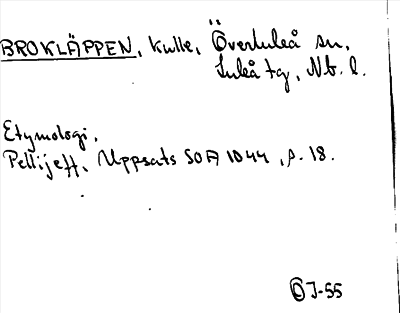 BROKLÄPPEN, kulle, Överluleå sn,
Luleå tg, Nb. l.
Etymologi.
Pellijeff, Uppsats SOA 1044, s. 18.
ÖJ-55